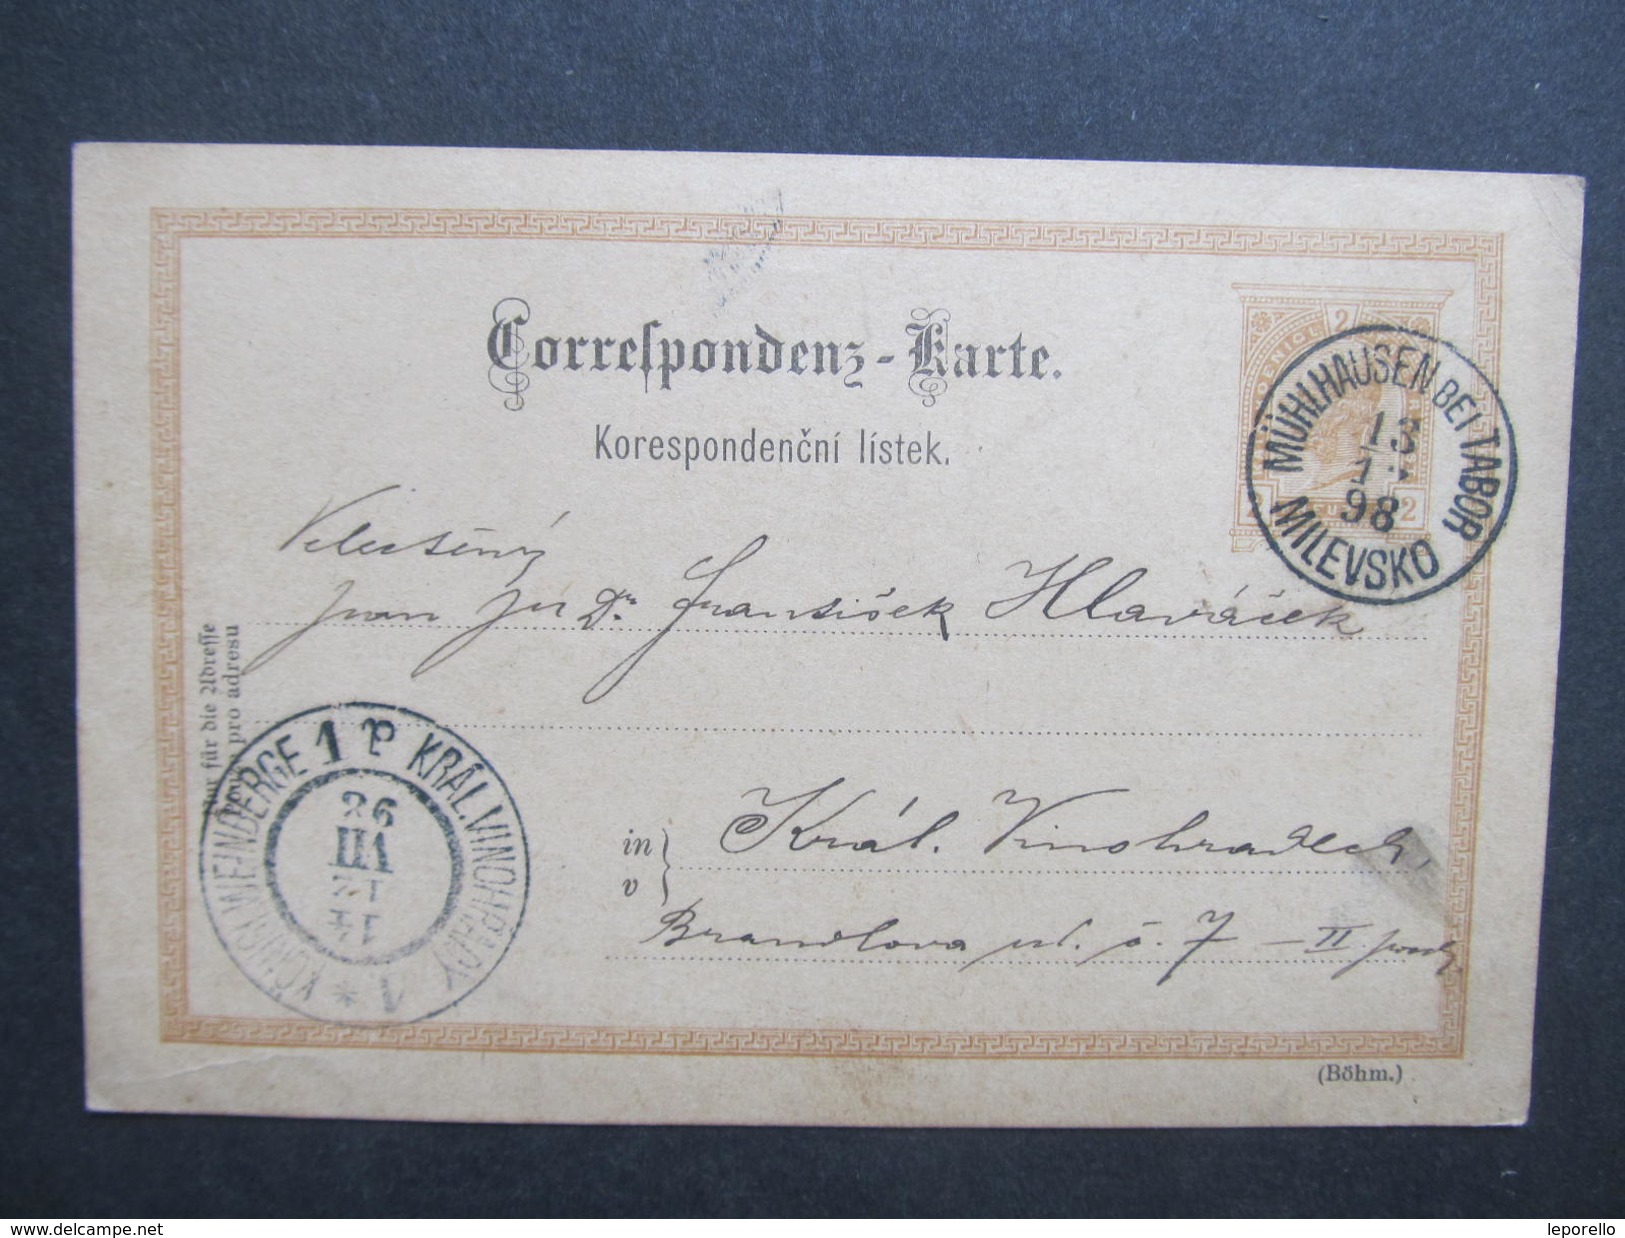 Correspondenz-Karte.
Korespondenční lístek.
2
2 2
MÜHLHAUSEN BEI TABOR
13
98
MILEVSKO
Velectěný
pan JUDr. František Hlaváček
Nur für die Adresse
Pouze pro adresu
KÖNIGL. WEINBERGE 1 KRÁL. VINOHRADY 1
VII
in
v
Král. Vinohradech,
Brandlova ul. č. 7 – II
(Böhm.)
www.delcampe.net
leporello